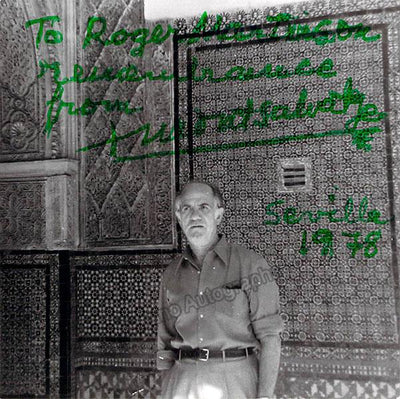 To Roger
remembrance
from
Montsalvatge
Sevilla
1978
© Autograph